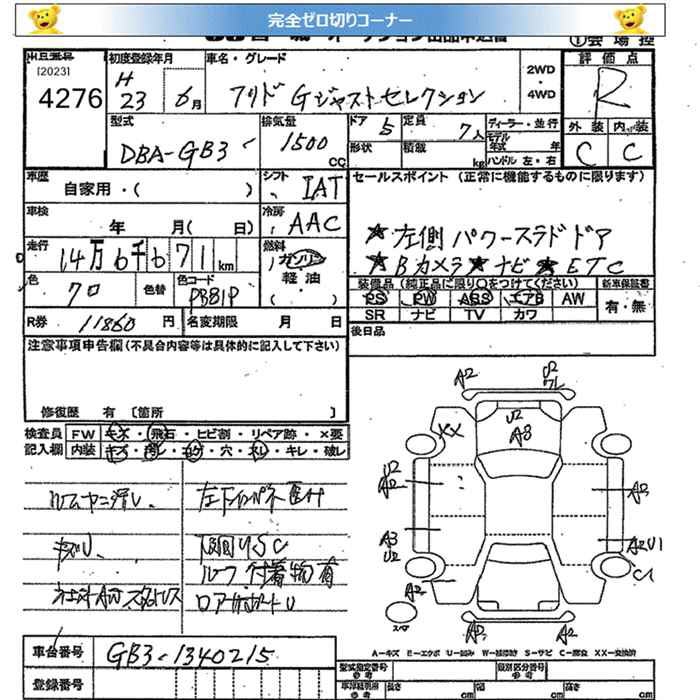 完全ゼロ切りコーナー
出品番号
[2023]
4276
初度登録年月
H
23 6月
車名・グレード
フリード Gジャストセレクション
2WD
・
4WD
①会場控
評価点
R
外装 内装
C C
型式
DBA-GB3
排気量
1500
CC
ドア 5
定員 7人
形状
積載 kg
ディーラー・並行
モデル年式 年
ハンドル 左・右
車歴
自家用・( )
シフト
IAT
セールスポイント (正常に機能するものに限ります)
車検
年 月( 日)
冷房
AAC
★左側パワースライドドア
★Bカメラ★ナビ★ETC
走行
14万6千671km
燃料
ガソリン
軽油
( )
色
クロ
色替
色コード
PB81P
装備品 (純正品に限り○をつけてください)
新車保証書
PS PW ABS エアB AW
有・無
SR ナビ TV カワ
R券
11860円
名変期限 月 日
後日品
注意事項申告欄(不具合内容等は具体的に記入して下さい)
修復歴 有 [箇所 ]
検査員
記入欄
FW キズ・飛石・ヒビ割・リペア跡・×要
内装 キズ・汚レ・コゲ・穴・スレ・キレ・破レ
A2
U2
U2
A3
XX
U2
A2
A3
A3
U2
A2U1
A2
C1
A2
A2
A=キズ E=エクボ U=凹み W=補修跡 S=サビ C=腐食 XX=交換済
車台番号
GB3-1340215
登録番号
型式指定番号
類別区分番号
長さ cm
幅 cm
高さ cm